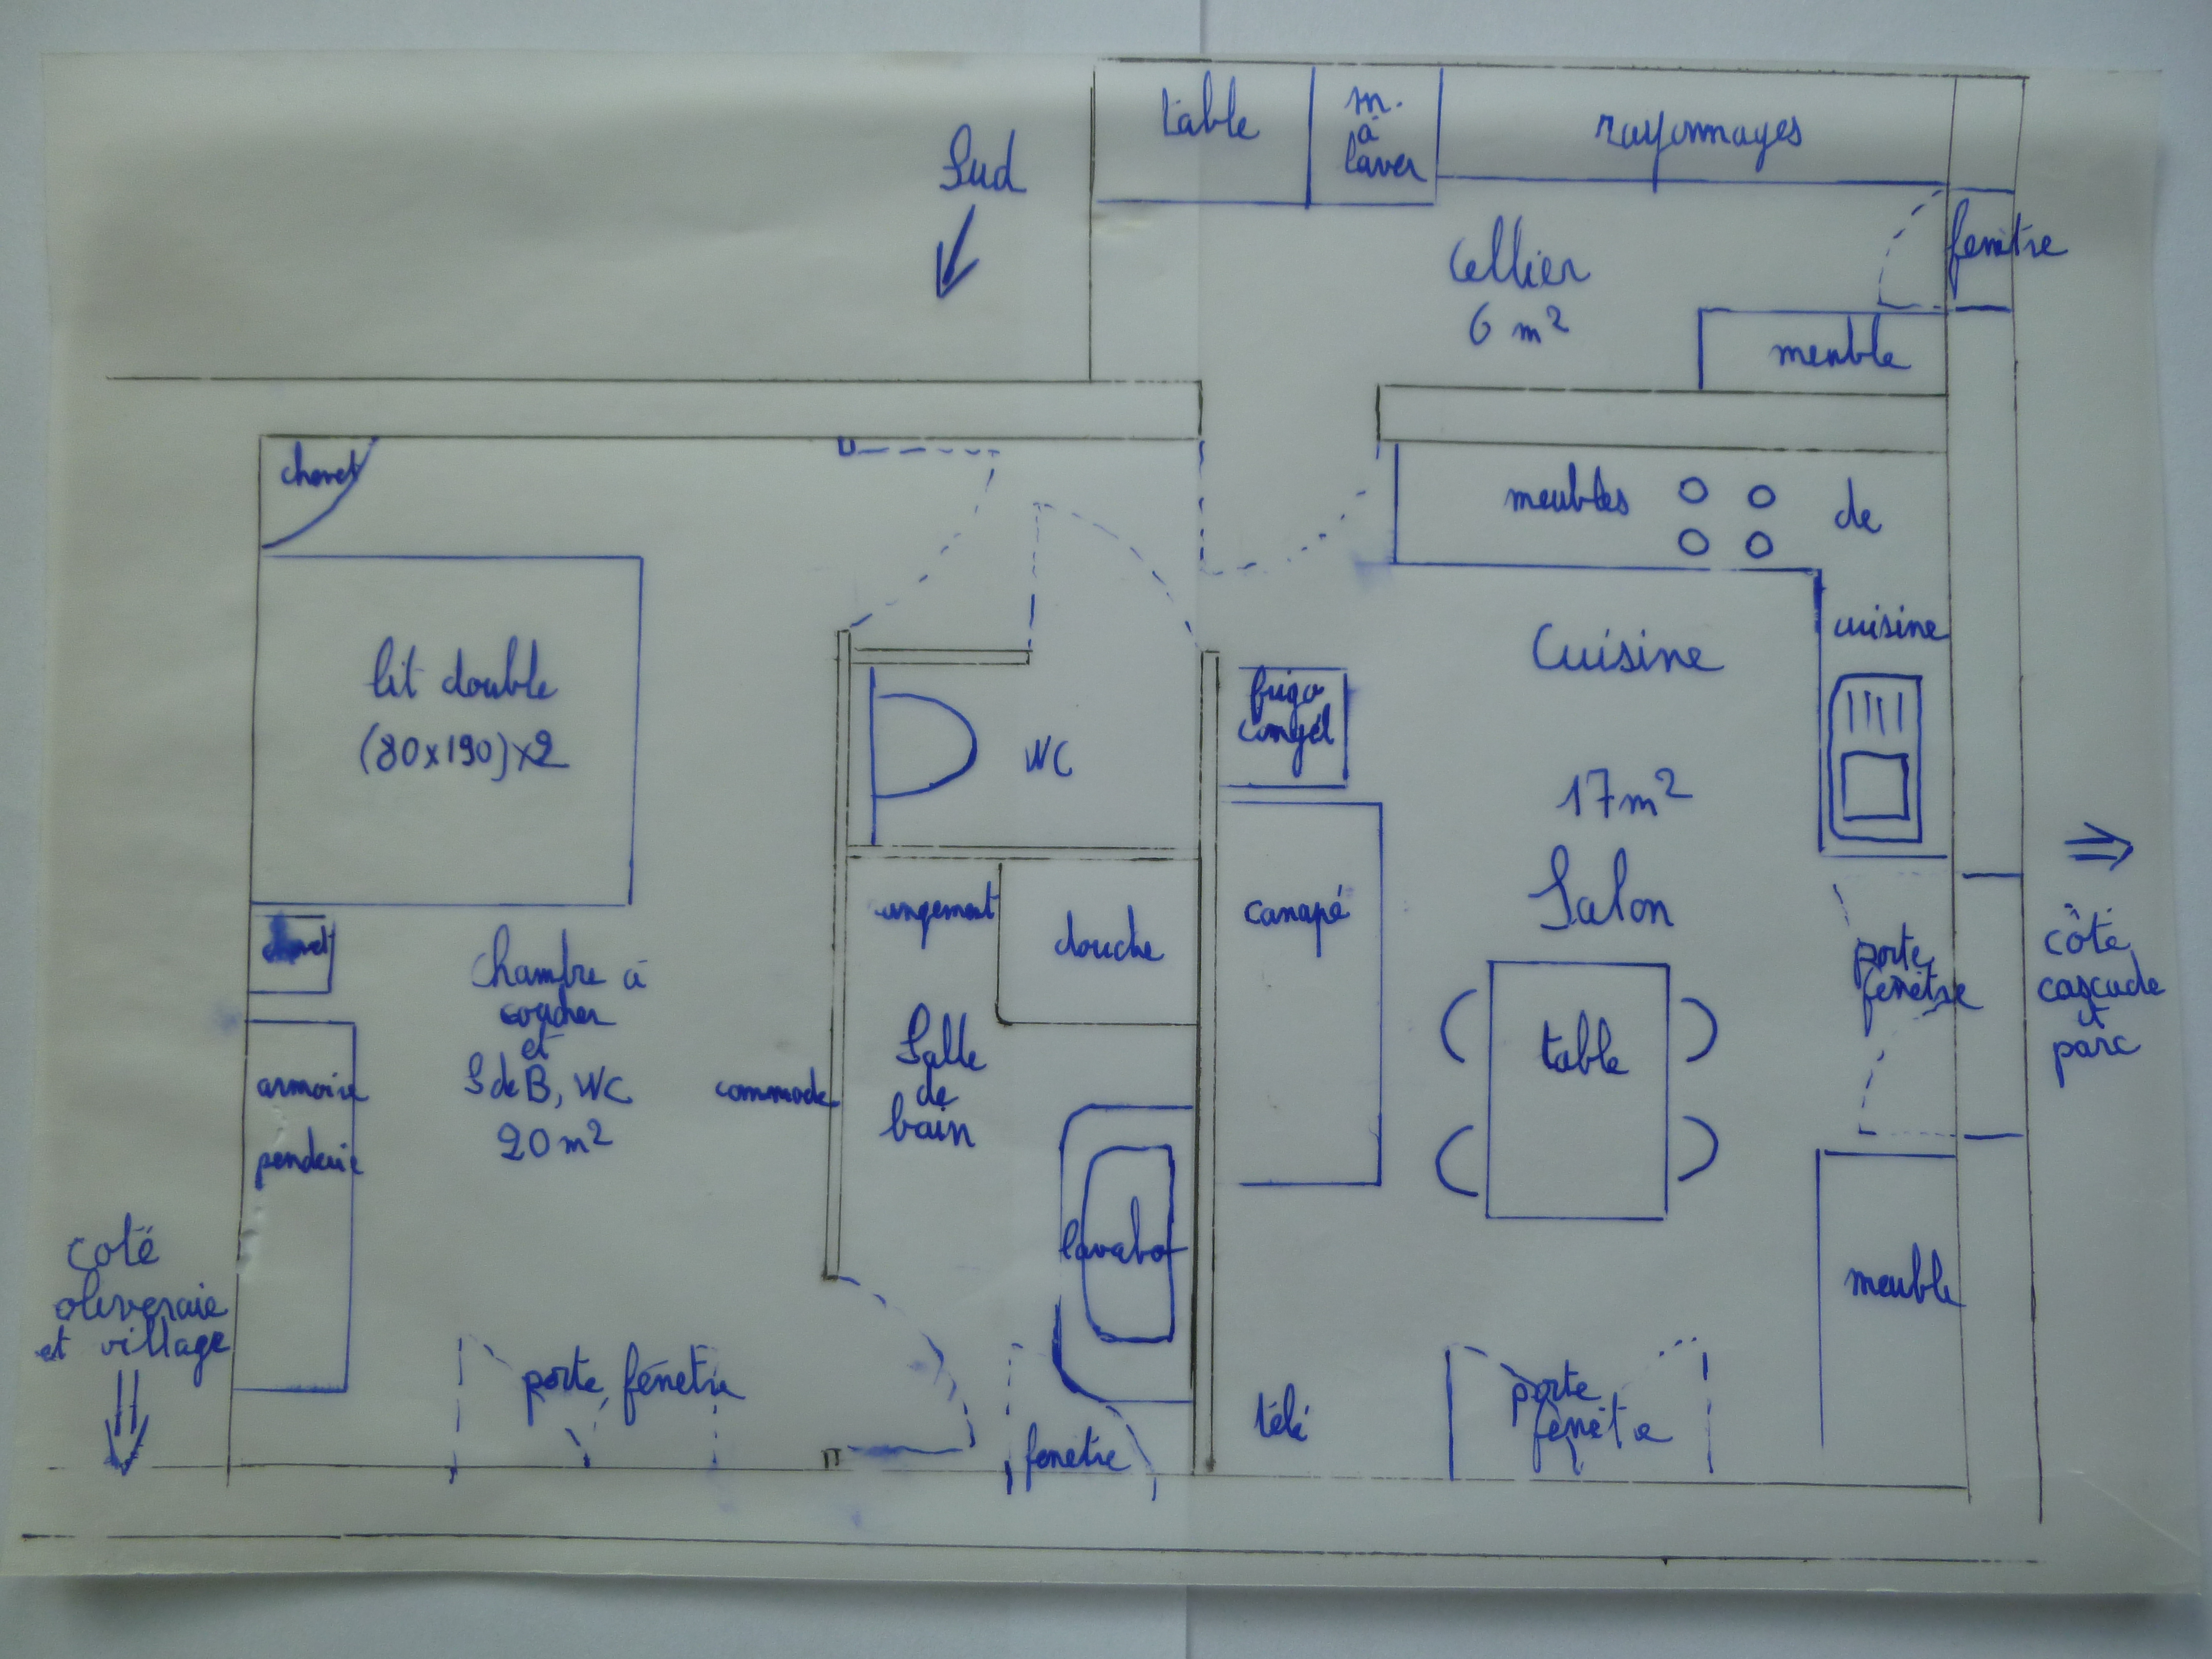 table
m.
à
laver
rayonnages
Sud
fenêtre
Cellier
6 m²
meuble
chevet
meubles
de
cuisine
lit double
(80x190)x2
WC
frigo
congél
Cuisine
17m²
Salon
canapé
rangement
douche
chevet
Chambre à
coucher
et
S de B, WC
20 m²
armoire
penderie
commode
Salle
de
bain
table
porte
fenêtre
côté
cascade
et
parc
coté
oliveraie
et village
lavabo
meuble
porte fenêtre
fenêtre
télé
porte
fenêtre